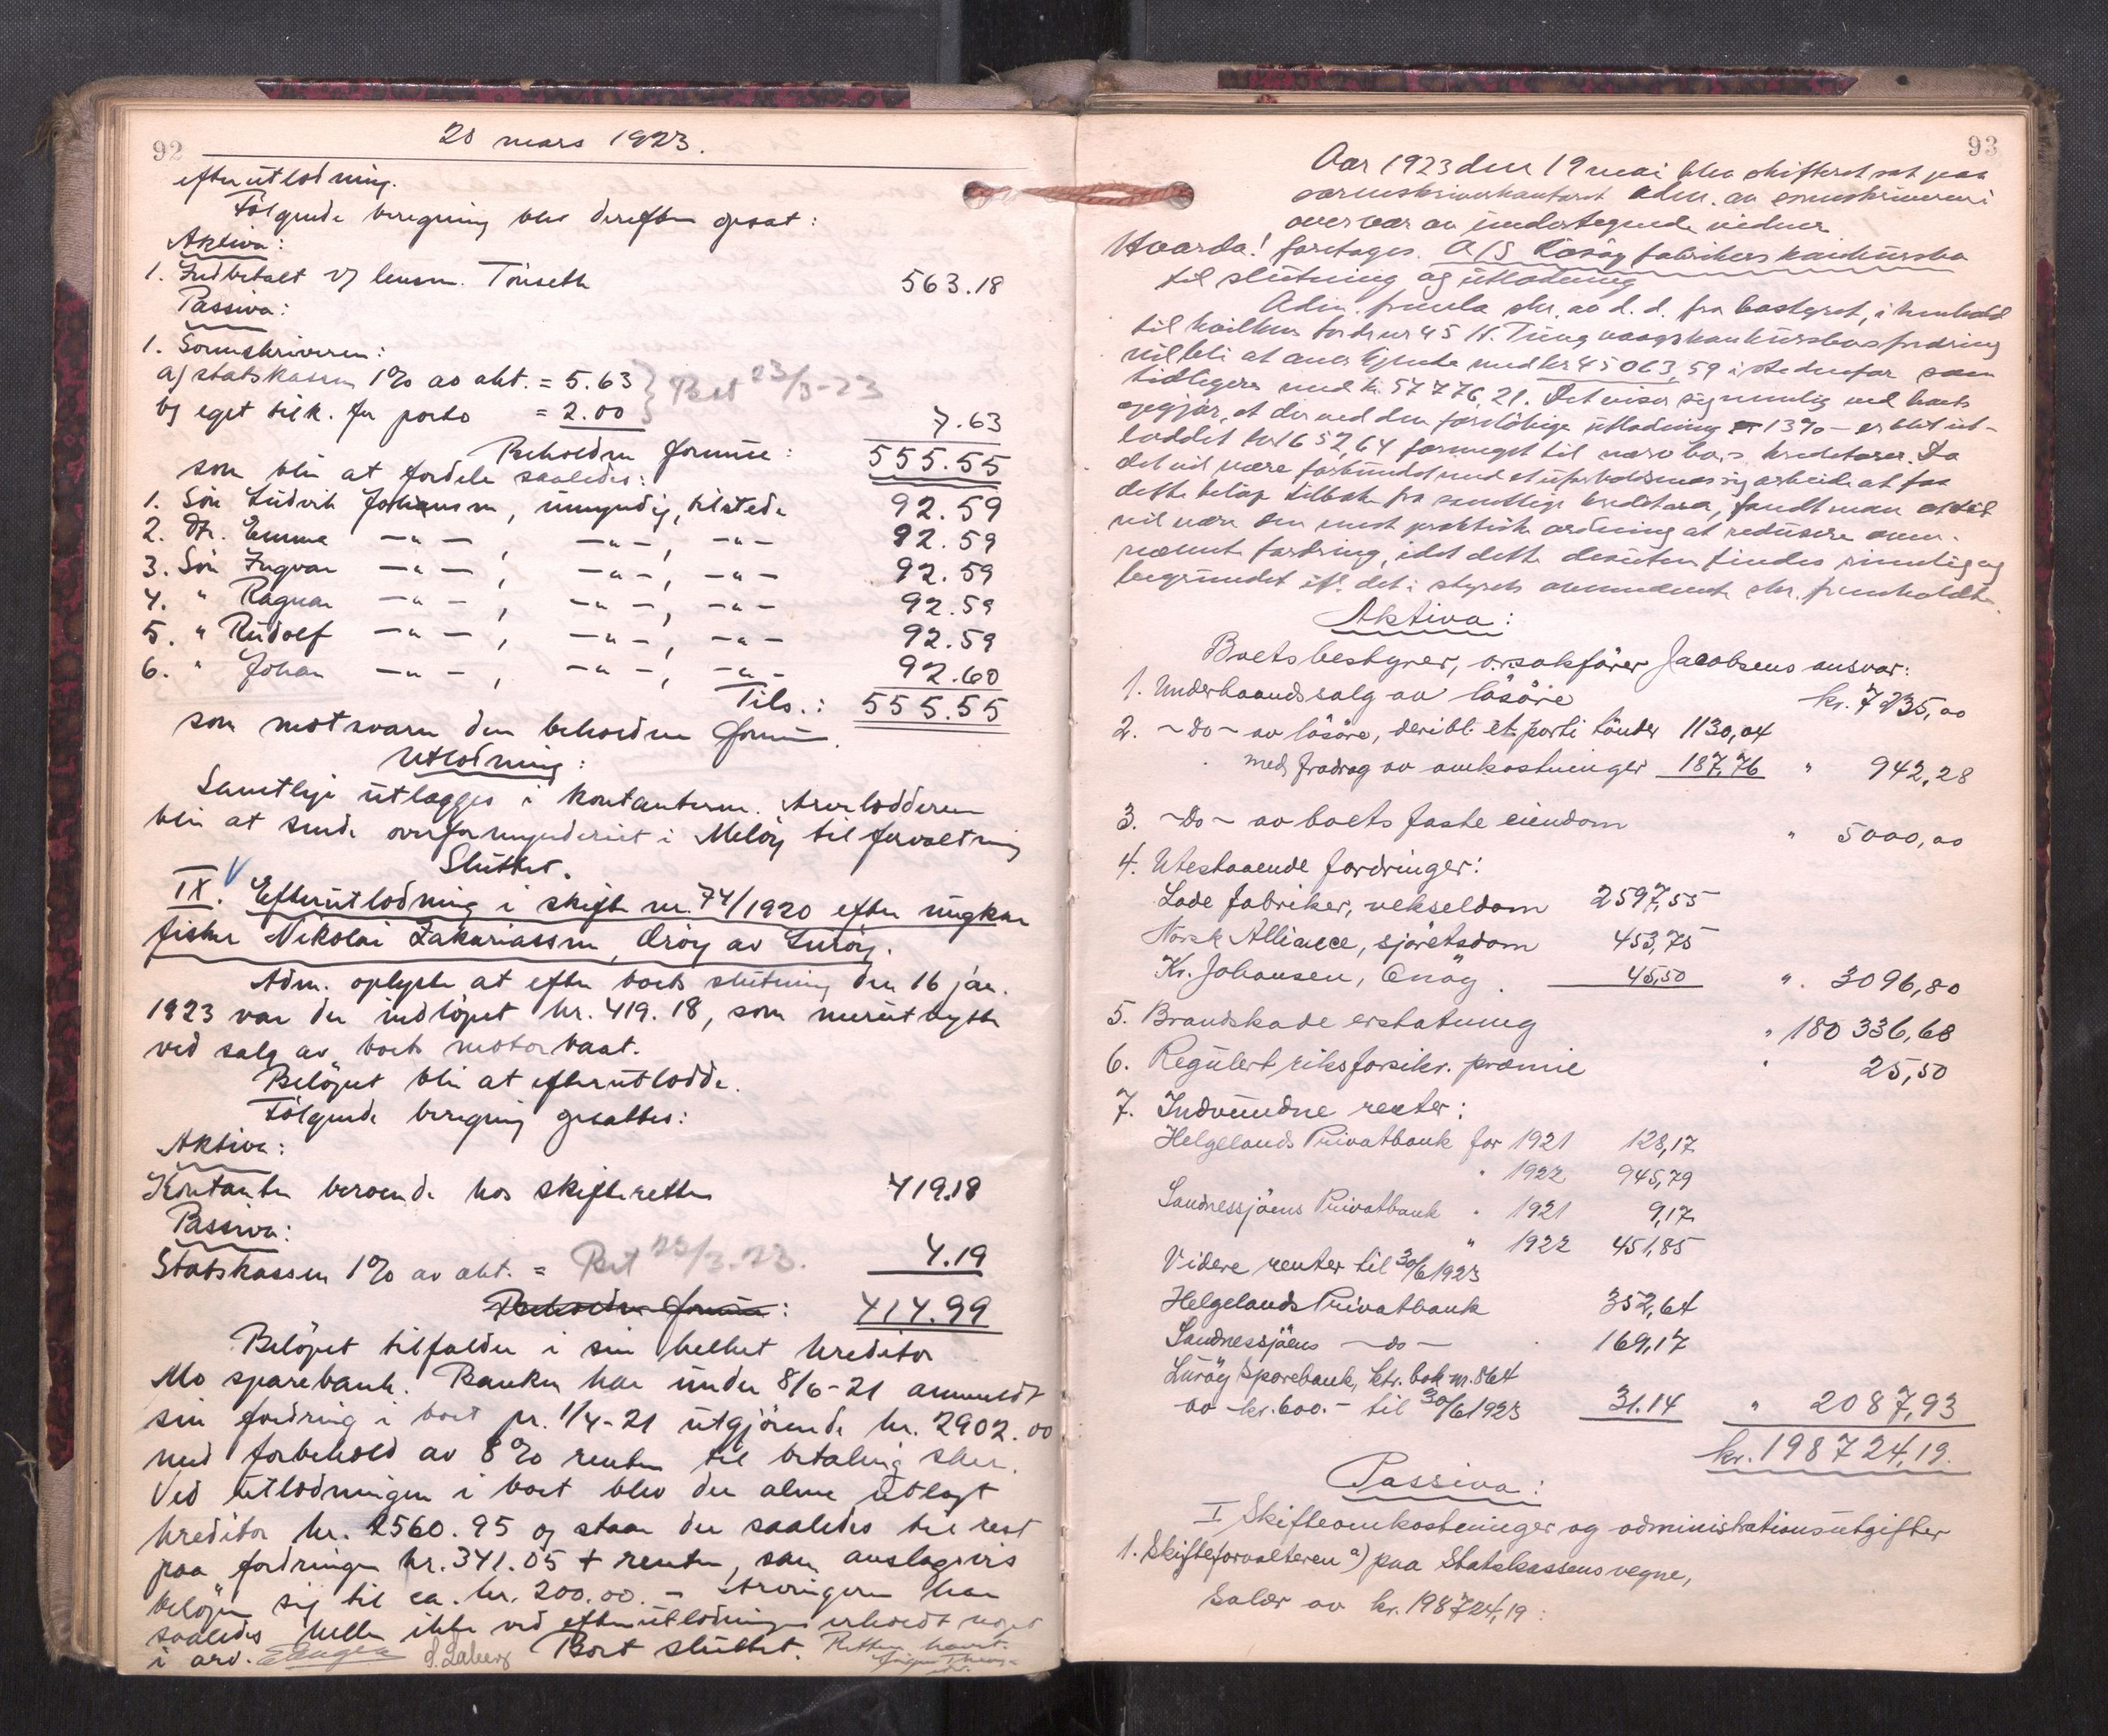 92
20 mars 1923.
efterutlodning.
Følgende beregning blev derefter gjort:
Aktiva:
1. Indbetalt v/ lensm. Tönseth 563.18
Passiva:
1. Sorenskriveren:
a) statskassen 1% av akt. = 5.63 } Bet 23/3-23
b) eget tilk. for porto = 2.00 7.63
Beholden formue: 555.55
som blir at fordele saaledes:
1. Søn Ludvik Johansen, umyndig, tilstede 92.59
2. Dt. Emma —"— , —"—, —"— 92.59
3. Søn Ingvar —"— , —"—, —"— 92.59
4. " Ragnar —"— , —"—, —"— 92.59
5. " Rudolf —"— , —"—, —"— 92.59
6. " Johan —"— , —"—, —"— 92.60
Tils.: 555.55
som motsvarer den beholdne formue.
Utlodning:
Samtlige utlægges i kontanterne. Arvelodderne
blir at sende overformynderiet i Meløy til forvaltning
Sluttet.
IX. Efterutlodning i skifte nr. 74/1920 efter ungkar
fisker Nikolai Zakariassen, av Lurøy.
Adm. oplyste at efter boets slutning den 16 jan.
1923 var der indløpet kr. 419.18, som merutbytte
ved salg av boets motorbaat.
Beløpet blir at efterutlodde.
Følgende beregning gjordes:
Aktiva:
Kontanter beroende hos skifteretten 419.18
Passiva:
Statskassen 1% av akt. = Bet 23/3.23. 4.19
Beholden formue: 414.99
Beløpet tilfalder i sin helhet kreditor
Mo sparebank. Banken har under 8/6-21 anmeldt
sin fordring i boet pr. 1/4-21 utgjørende kr. 2902.00
med forbehold av 8% renter til betaling sker.
Ved utlodningen i boet blev der alene utlagt
kreditor kr. 2560.95 og staar der saaledes til rest
paa fordringen kr. 341.05 + renter, som anslagsvis
beløper sig til ca. kr. 200.00. – Arvingerne har
saaledes heller ikke ved efterutlodningen erholdt noget
i arv. Boet sluttet. Retten hævet.
93
Aar 1923 den 19 mai blev skifteret sat paa
sorenskriverkontoret adm. av sorenskriveren i
overvær av undertegnede vidner
Hvorda! foretages. A/S Lovøy fabrikers konkursbo
til slutning og utlodning
Adm. fremla skr. av d. d. fra bostyret, i henhold
til hvilken fordr nr 45 H. Ting vaagskonkursbos fordring
vil bli at anerkjende med kr 45 063,59 istedenfor som
tidligere med kr. 57 776,21. Det viser sig nemlig ved boets
opgjør, at der ved den foreløbige utlodning – 13% – er blit ut-
loddet kr 1652,64 formeget til nævnte bo's kreditorer. Da
det vil være forbundet med et uforholdsmæssig arbeide at faa
dette beløp tilbake fra samtlige kreditorer, fandt man at det
vil være den mest praktiske ordning at redusere oven-
nævnte fordring, idet dette desuten findes rimelig og
begrundet ifl. det i styrets skr. fremholdte.
Aktiva:
Boets bestyrer, o.r.sakfører Jacobsens ansvar:
1. Underhaandssalg av løsøre kr. 7 235,00
2. ~do~ av løsøre, deribl. et parti tønder 1130,04
med fradrag av omkostninger 187,76 " 942,28
3. ~do~ av boets faste eiendom " 5000,00
4. Utestaaende fordringer:
Lade fabriker, vekseldom 2597,55
Norsk Alliance, sjøretsdom 453,75
Kr. Johansen, Onøy 45,50 " 3096,80
5. Brandskade erstatning " 180 336,68
6. Regulert riksforsikr. præmie " 25,50
7. Indvundne renter:
Helgelands Privatbank for 1921 128,17
" 1922 945,79
Sandnessjøens Privatbank " 1921 9,17
" 1922 451,85
Videre renter til 30/6 1923
Helgelands Privatbank 352,64
Sandnessjøens —do— 169,17
Lurøy Sparebank, ktr. bok nr. 864
av kr. 600.- til 30/6 1923 31.14 " 2087,93
kr. 198724,19.
Passiva:
I Skifteomkostninger og administrationsutgifter
1. Skifteforvalteren a) paa Statskassens vegne,
Salær av kr. 198724,19: